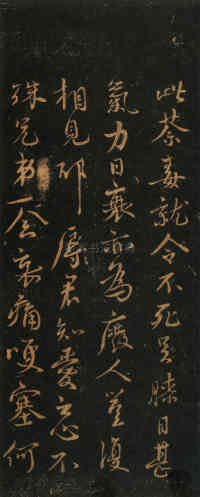 此荼毒就令不死足膝日甚
氣力日衰亦為廢人豈復
相見邪辱君知愛之心不
殊兄弟一念哀痛哽塞何